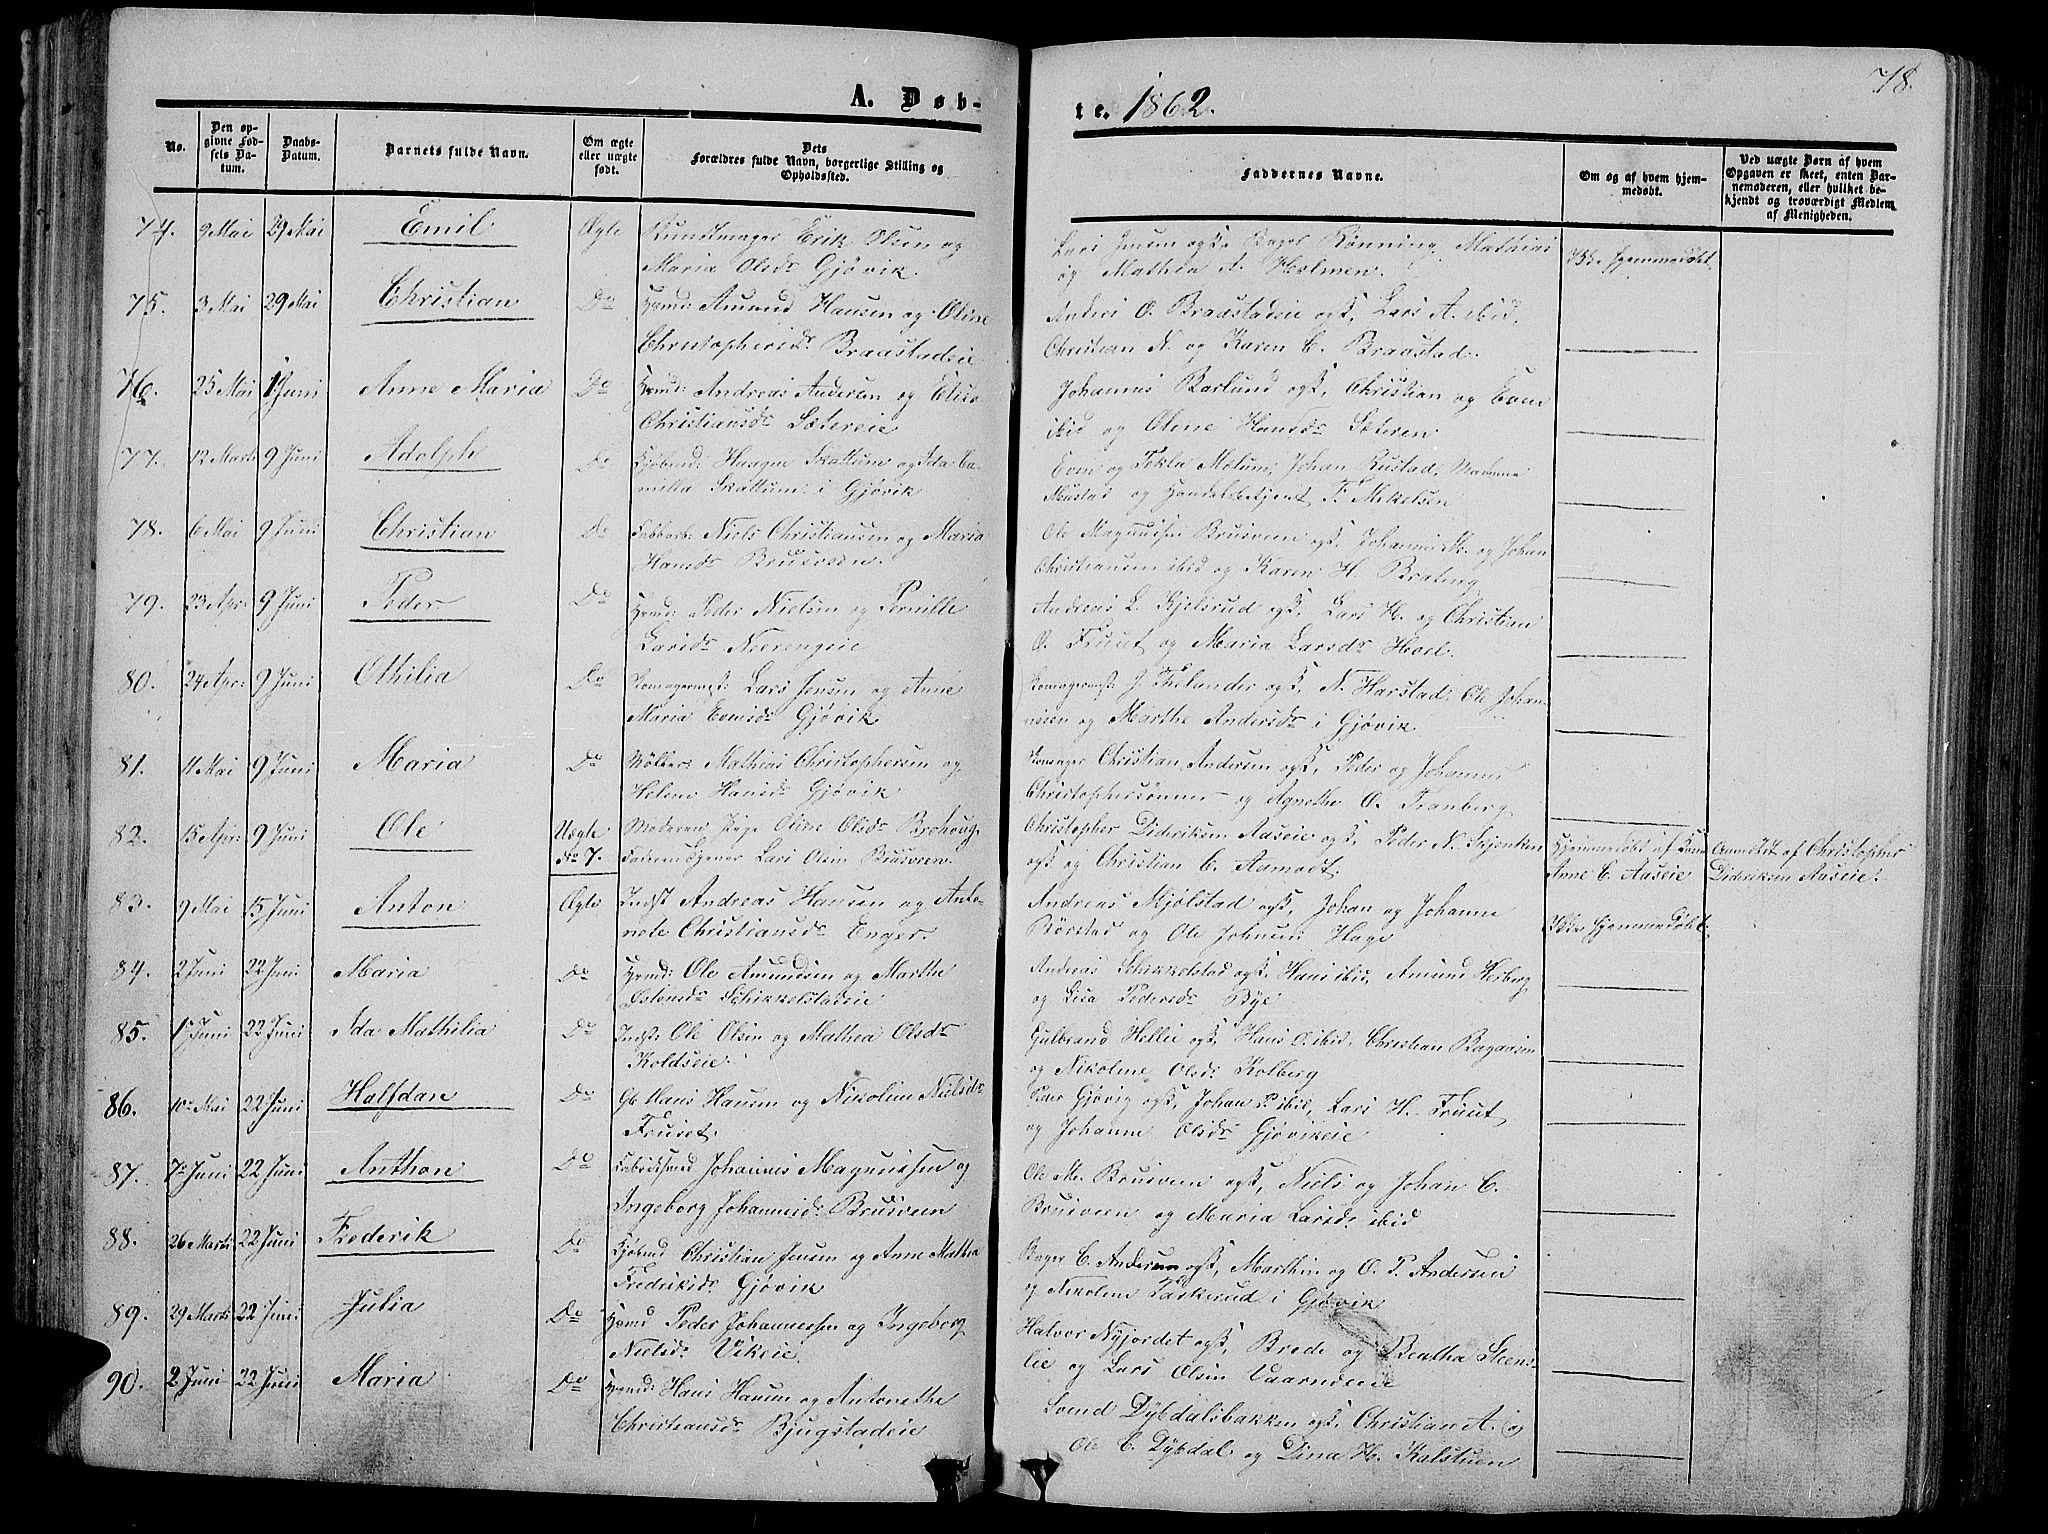 78.
A. Døb-
te. 1862.
No.
Den op-
givne Fød-
sels Da-
tum.
Daabs-
Datum.
Barnets fulde Navn.
Om ægte
eller uægte
født.
Dets
Forældres fulde Navn, borgerlige Stilling og
Opholdssted.
Faddernes Navne.
Om og af hvem hjem-
medøbt.
Ved uægte Børn af hvem
Opgaven er skeet, enten Bar-
nemoderen, eller hvilket be-
kjendt og troværdigt Medlem
af Menigheden.
74. 9 Mai 29 Mai Emil Ægte Buntmager Erik Olsen og
Maria Olsdr Gjøvik.
Lars Jensen ogsk. Bager Rønning, Mathias
og Mathea A. Holmen. Hjemmedøbt
75. 3 Mai 29 Mai Christian Do Hmd: Amund Hansen og Oline
Christophersdr Braastadeie
Anders O. Braastadeie ogsk, Lars A. ibid,
Christian N. og Karen C. Braastad.
76. 25 Mai 1 Juni Anne Maria Do Hmd: Andreas Andersen og Elise
Christiansdr Sætereie
Johannes Barlund ogsk, Christian og Even
ibid og Oline Hansdr Sæteren
77. 12 Marts 9 Juni Adolph Do Kjøbmd: Haagen Skattum og Ida Ca-
milla Skattum i Gjøvik
Even og Tekla Mælum, Johan Rustad, Madame
Mustad og Handelsbetjent F. Mikelsen
78. 6 Mai 9 Juni Christian Do Fabbarb: Niels Christiansen og Maria
Hansdr Brusveen.
Ole Magnussen Brusveen ogsk, Johannes M. og Johan
Christiansen ibid og Karen H. Brateng
79. 23 Apr: 9 Juni Peder Do Hmd: Peder Nielsen og Pernille
Larsdr Nærengeie
Andreas L. Kjelsrud ogsk, Lars H. og Christian
O. Fruset og Maria Larsdr Hoel.
80. 24 Apr: 9 Juni Othilia Do Lars Jensen og Anne
Maria Evensdr Gjøvik
J. Thelander ogsk, N. Harstad, Ole Johan-
nesen og Marthe Andersdr i Gjøvik.
81. 11 Mai 9 Juni Maria Do Møller Mathias Christophersen og
Helene Hansdr Gjøvik
Christian Andersen ogsk, Peder og Johannes
Christophersønner og Agnethe O. Tranberg
82. 15 Apr: 9 Juni Ole Uægte Moderen Pige Oline Olsdr Brohoug,
No 7. Faderen Lars Olsen Brusveen.
Christopher Dideriksen Aaseie ogsk, Peder N. Skjenken
ogsk og Christian C. Aamodt.
Hjemmedøbt af Kone
Anne C. Aaseie
Anmeldt af Christopher
Dideriksen Aaseie.
83. 9 Mai 15 Juni Anton Ægte Indst Andreas Hansen og Anto-
nete Christiansdr Enger.
Andreas Mjølstad ogsk, Johan og Johanne
Rørstad og Ole Johnsen Hage Hjemmedøbt.
84. 2 Juni 22 Juni Maria Do Hmd: Ole Amundsen og Marthe
Østensdr Schikkelstadeie
Andreas Schikkelstad ogsk, Hans ibid, Amund Hesberg
og Lisa Pedersdr Bye
85. 1 Juni 22 Juni Ida Mathilia Do Indst: Ole Olsen og Mathea Olsdr
Koldseie.
Gulbrand Hellie ogsk, Hans O. ibid, Christian
og Nikoline Olsdr Kolberg
86. 10 Mai 22 Juni Halfdan Do Gb Hans Hansen og Nikoline Nielsdr
Fruset.
Peder Gjøvig ogsk, Johan P. ibid, Lars H. Fruset
og Johanne Olsdr Gjøvikeie
87. 7 Juni 22 Juni Anthon Do Johannes Magnussen og
Ingeborg Johannesdr Brusveen
Ole M. Brusveen ogsk, Niels og Johan C.
Brusveen og Maria Larsdr ibid
88. 26 Marts 22 Juni Frederik Do Kjøbmd Christian Jensen og Anne Mathea
Fredriksdr Gjøvik
Bager C. Andersen ogsk, Marthin og O. P. Andersen
og Nikoline Paskerud i Gjøvik
89. 29 Marts 22 Juni Julia Do Hmd Peder Johannessen og Ingeborg
Nielsdr Vikeie.
Halvor Nyjordet ogsk, Brede og Beatha Steens-
lie og Lars Olsen
90. 2 Juni 22 Juni Maria Do Hmd: Hans Hansen og Antonethe
Christiansdr Bjugstadeie
Svend Dybdalsbakken ogsk, Christian A. og
Ole C. Dybdal og Dina H. Kalstuen